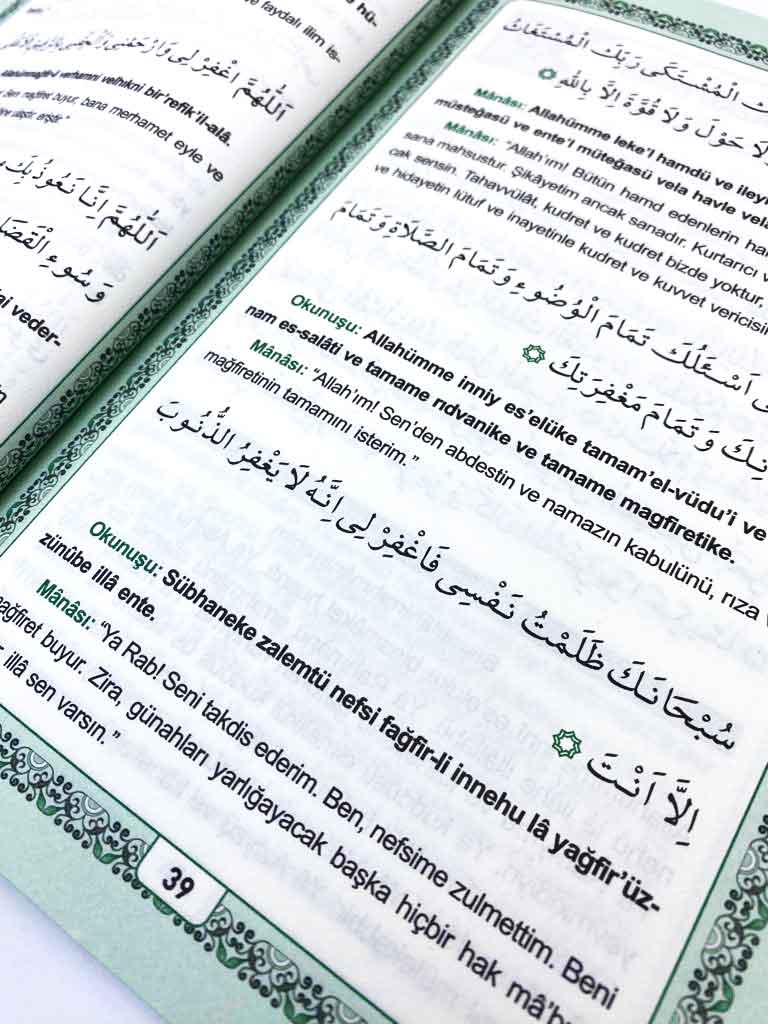 ve faydalı ilim is-
اَللّٰهُمَّ اغْفِرْ لِى وَارْحَمْنِى
verhamni velhıkni bir'refik'il-alâ.
mağfiret buyur, bana merhamet eyle ve
اَللّٰهُمَّ اِنَّا نَعُوذُ بِكَ
وَسُوءِ الْقَضَا
veder-
الْمُشْتَكَى رَبَّكَ الْمُسْتَغَاثُ
لَا حَوْلَ وَلَا قُوَّةَ اِلَّا بِاللّٰهِ
Mânâsı: Allahümme leke'l hamdü ve ileyk
müsteğasü ve ente'l müteğasü vela havle vela
Mânâsı: "Allah'ım! Bütün hamd edenlerin ha
sana mahsustur. Şikâyetim ancak sanadır. Kurtarıcı v
cak sensin. Tahavvülât, kudret ve kudret bizde yoktur,
ve hidayetin lütuf ve inayetinle kudret ve kuvvet vericisin
اَسْئَلُكَ تَمَامَ الْوُضُوءِ وَتَمَامَ الصَّلَاةِ وَتَمَامَ
وَتَمَامَ مَغْفِرَتِكَ
Okunuşu: Allahümme inniy es'elüke tamam'el-vüdu'i ve
nam es-salâti ve tamame rıdvanike ve tamame magfiretike.
Mânâsı: "Allah'ım! Sen'den abdestin ve namazın kabulünü, rıza
mağfiretinin tamamını isterim."
سُبْحَانَكَ ظَلَمْتُ نَفْسِى فَاغْفِرْ لِى اِنَّهُ لَا يَغْفِرُ الذُّنُوبَ
اِلَّا اَنْتَ
Okunuşu: Sübhaneke zalemtü nefsi fağfir-li innehu lâ yağfir'üz-
zünübe illâ ente.
Mânâsı: "Ya Rab! Seni takdis ederim. Ben, nefsime zulmettim. Beni
mağfiret buyur. Zira, günahları yarlığayacak başka hiçbir hak mâ'b
illâ sen varsın."
39